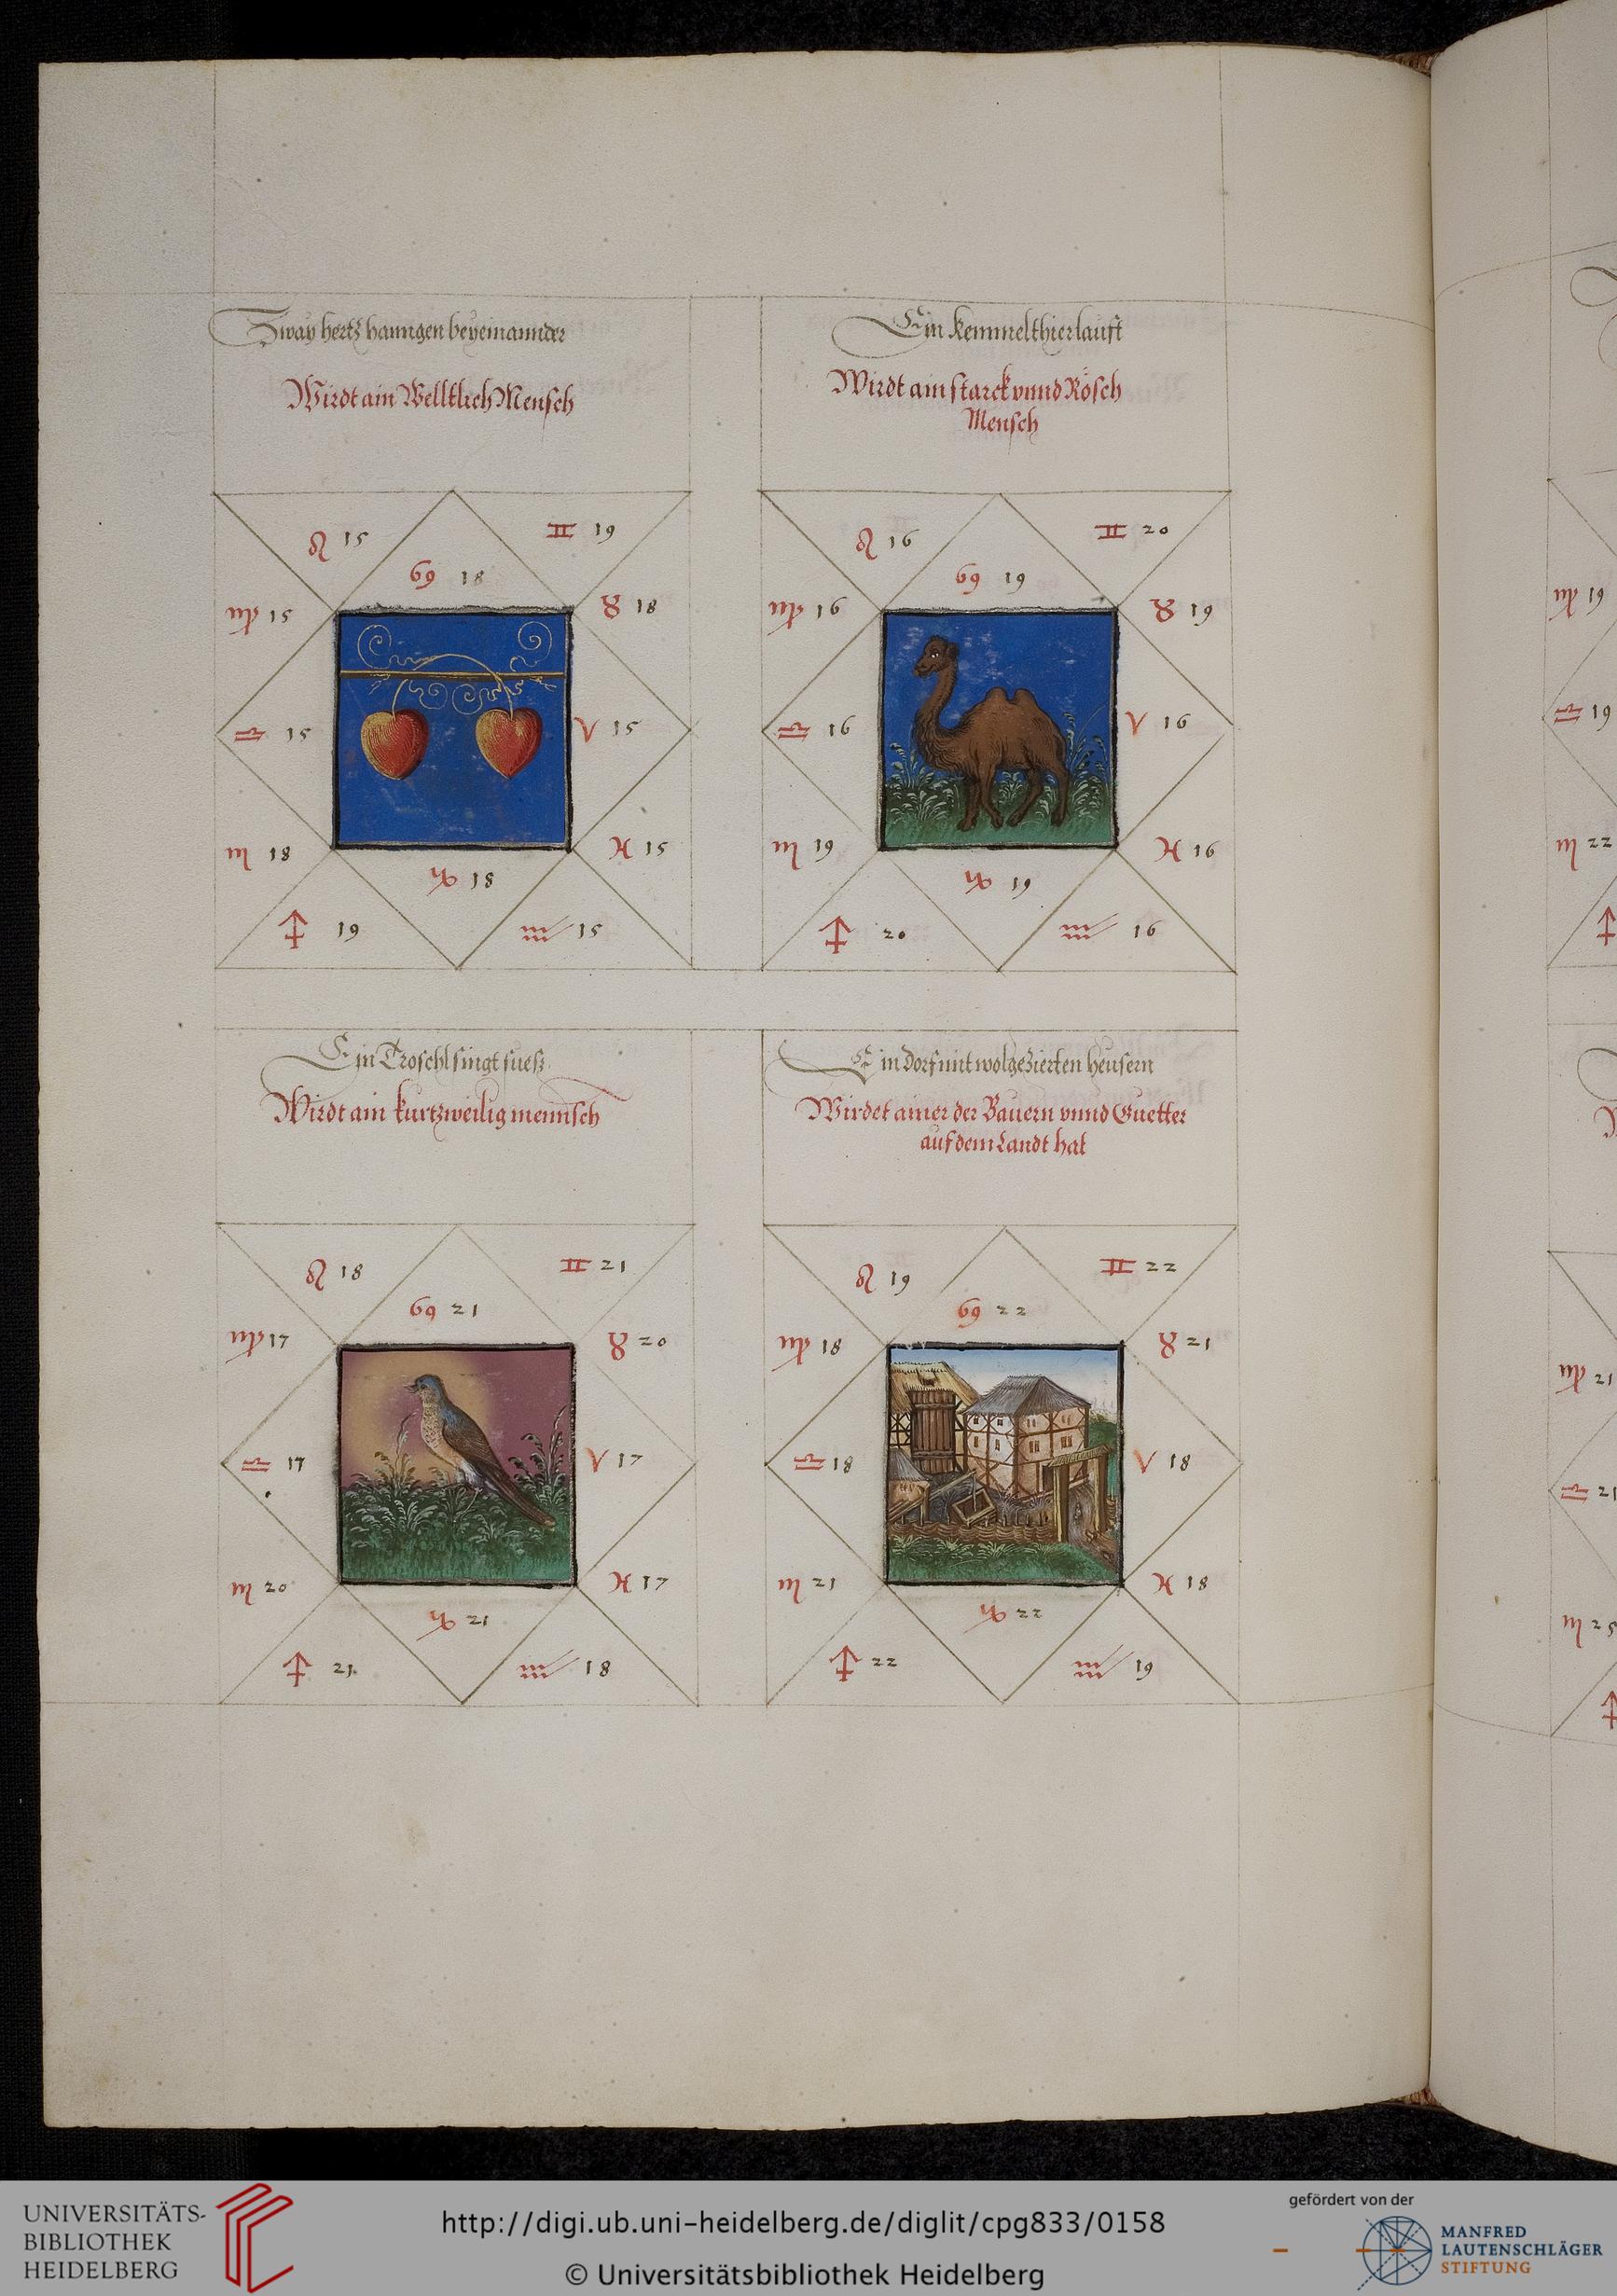 Zway hertz hanngen beyeinannder
Wirdt ain Welltlich Mensch
♌ 15
♊ 19
♋ 18
♍ 15
♉ 18
♎ 15
♈ 15
♏ 18
♓ 15
♑ 18
♐ 19
♒ 15
Ein kemmelthier lauft
Wirdt ain starck vnnd Rösch
Mensch
♌ 16
♊ 20
♋ 19
♍ 16
♉ 19
♎ 16
♈ 16
♏ 19
♓ 16
♑ 19
♐ 20
♒ 16
Ein Troschl singt suesz
Wirdt ain kurtzweilig mennsch
♌ 18
♊ 21
♋ 21
♍ 17
♉ 20
♎ 17
♈ 17
♏ 20
♓ 17
♑ 21
♐ 21
♒ 18
Ein dorf mit wolgezierten heusern
Wirdet ainer der Bauern vnnd Guetter
auf dem Landt hat
♌ 19
♊ 22
♋ 22
♍ 18
♉ 21
♎ 18
♈ 18
♏ 21
♓ 18
♑ 22
♐ 22
♒ 19
♍ 19
♎ 19
♏ 22
♍ 21
♎ 21
UNIVERSITÄTS-
BIBLIOTHEK
HEIDELBERG
http://digi.ub.uni-heidelberg.de/diglit/cpg833/0158
© Universitätsbibliothek Heidelberg
gefördert von der
MANFRED
LAUTENSCHLÄGER
STIFTUNG